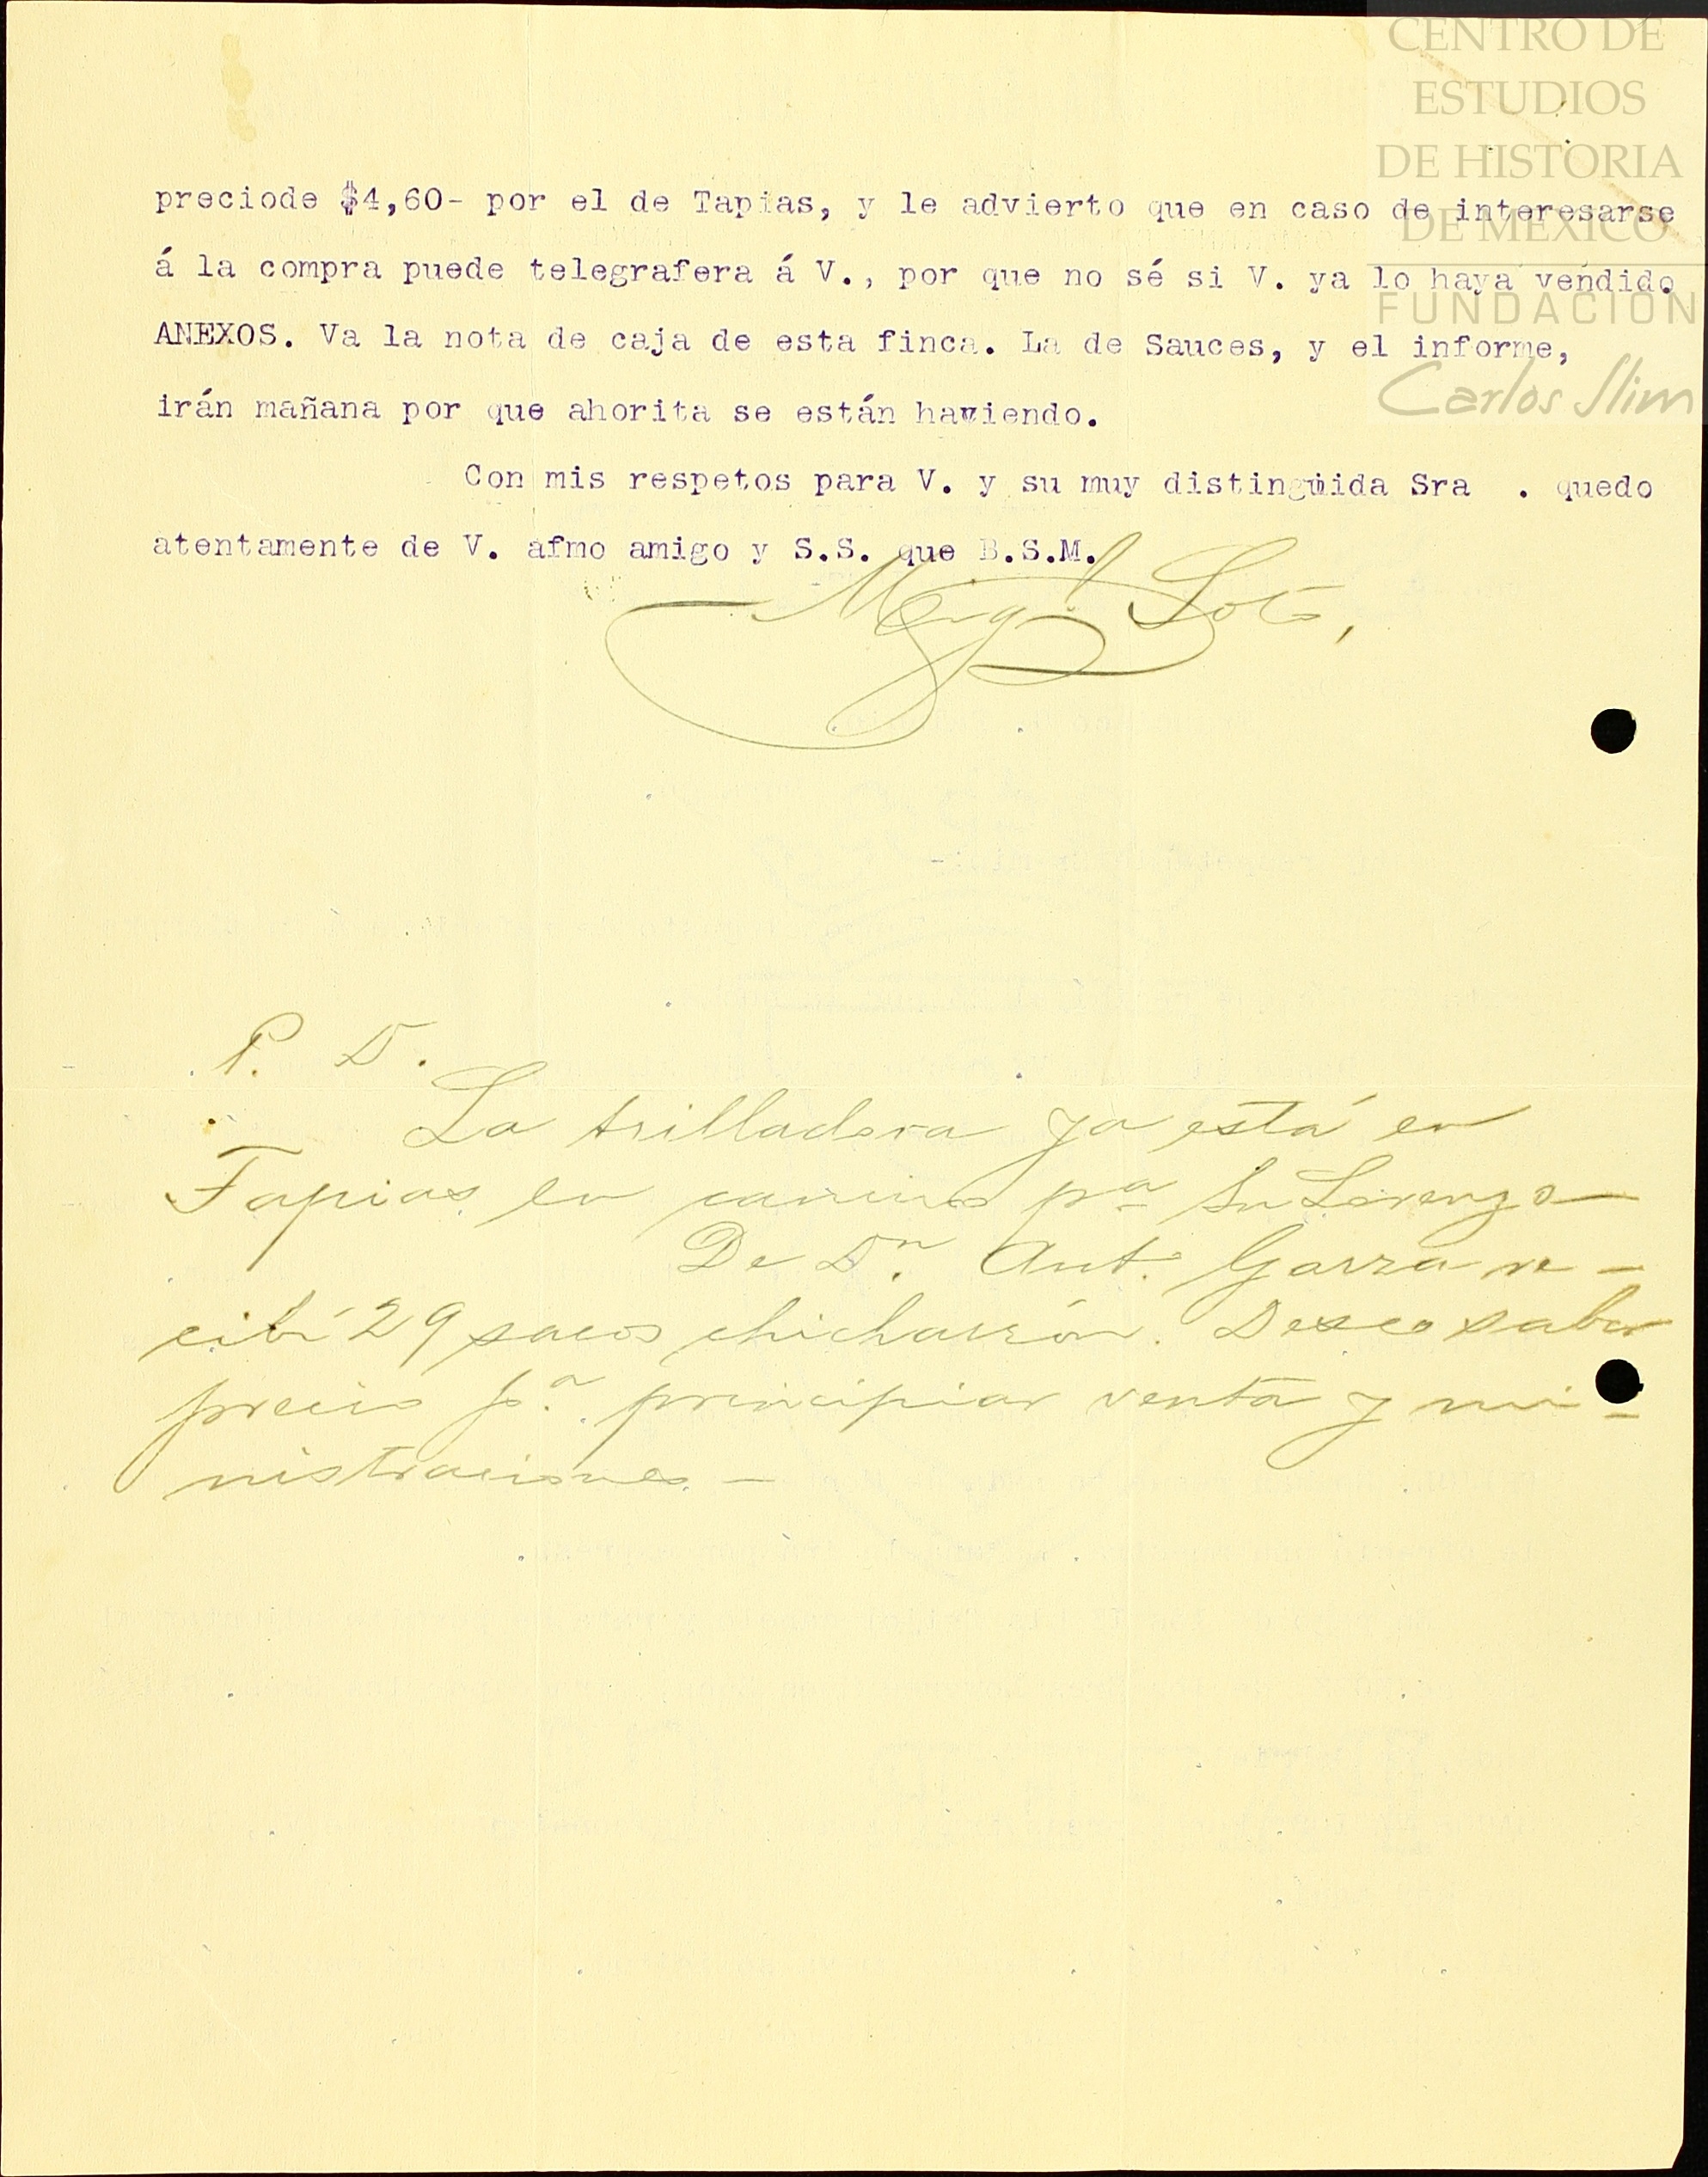 CENTRO DE
ESTUDIOS
DE HISTORIA
DE MÉXICO
FUNDACIÓN
Carlos Slim
preciode $4,60- por el de Tapias, y le advierto que en caso de interesarse
á la compra puede telegrafera á V., por que no sé si V. ya lo haya vendido.
ANEXOS. Va la nota de caja de esta finca. La de Sauces, y el informe,
irán mañana por que ahorita se están haciendo.
Con mis respetos para V. y su muy distinguida Sra . quedo
atentamente de V. afmo amigo y S.S. que B.S.M.
Migl Soto,
P. D.
La trilladora ya está en
Tapias en camino pa Sn Lorenzo
De Dn. Ant. Garza re-
cibí 29 sacos chicharrón. Deseo saber
precio pa. principiar venta y mi-
nistraciones.-